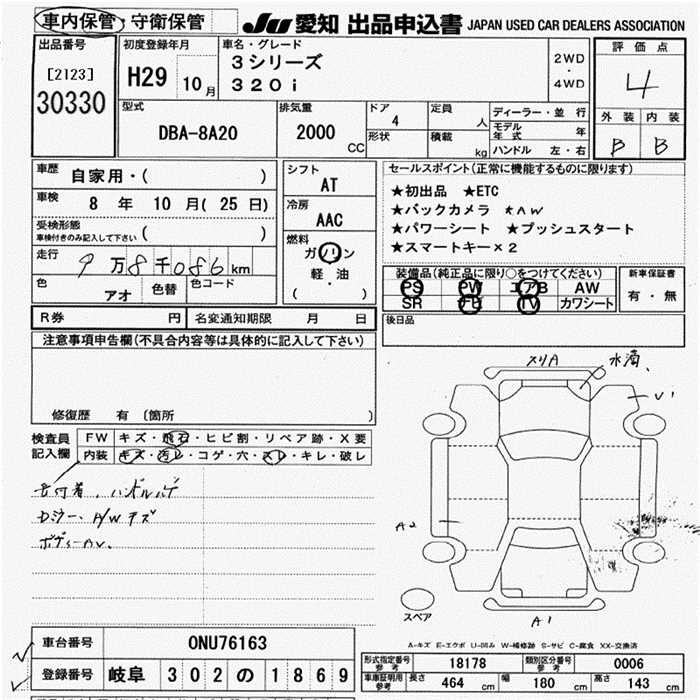 車内保管・守衛保管
JU 愛知 出品申込書 JAPAN USED CAR DEALERS ASSOCIATION
出品番号
[2123]
30330
初度登録年月
H29 10月
車名・グレード
3シリーズ
320i
2WD
・
4WD
評価点
4
外装 内装
B B
型式
DBA-8A20
排気量
2000
CC
ドア
4
形状
定員
人
積載
kg
ディーラー・並行
モデル年式 年
ハンドル 左・右
車歴
自家用・( )
車検
8 年 10 月( 25 日)
受検形態
車検付きのみ記入して下さい ( )
走行
9万8千086km
色
アオ
色替
色コード
シフト
AT
冷房
AAC
燃料
ガソリン
・
軽・油
・
( )
セールスポイント(正常に機能するものに限ります)
★初出品 ★ETC
★バックカメラ ★AW
★パワーシート ★プッシュスタート
★スマートキー×2
装備品(純正品に限り○をつけてください)
PS PW エアB AW
SR ナビ TV カワシート
新車保証書
有・無
後日品
R券 円
名変通知期限 月 日
注意事項申告欄(不具合内容等は具体的に記入して下さい)
修復歴 有 (箇所 )
検査員記入欄
FW キズ・飛石・ヒビ割・リペア跡・X要
内装 キズ・汚レ・コゲ・穴・スレ・キレ・破レ
ハンドル
Dミラー、A/Wキズ
ボディーAV、
スリA
水滴
A2
A1
スペア
A-キズ E-エクボ U-凹み W-補修跡 S-サビ C-腐食 XX-交換済
車台番号
0NU76163
登録番号
岐阜 302 の 1869
形式指定番号 参考
18178
類別区分番号 参考
0006
車庫証明用 参考
長さ 464 cm 幅 180 cm 高さ 143 cm